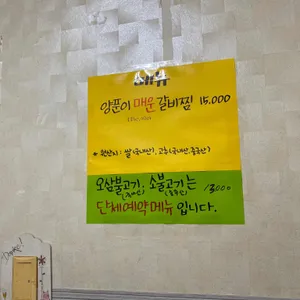 메뉴
양푼이 매운 갈비찜 15,000
* 원산지 : 쌀(국내산), 고추(국내산, 중국산)
오삼불고기, 소불고기는 13000
단체예약메뉴 입니다.